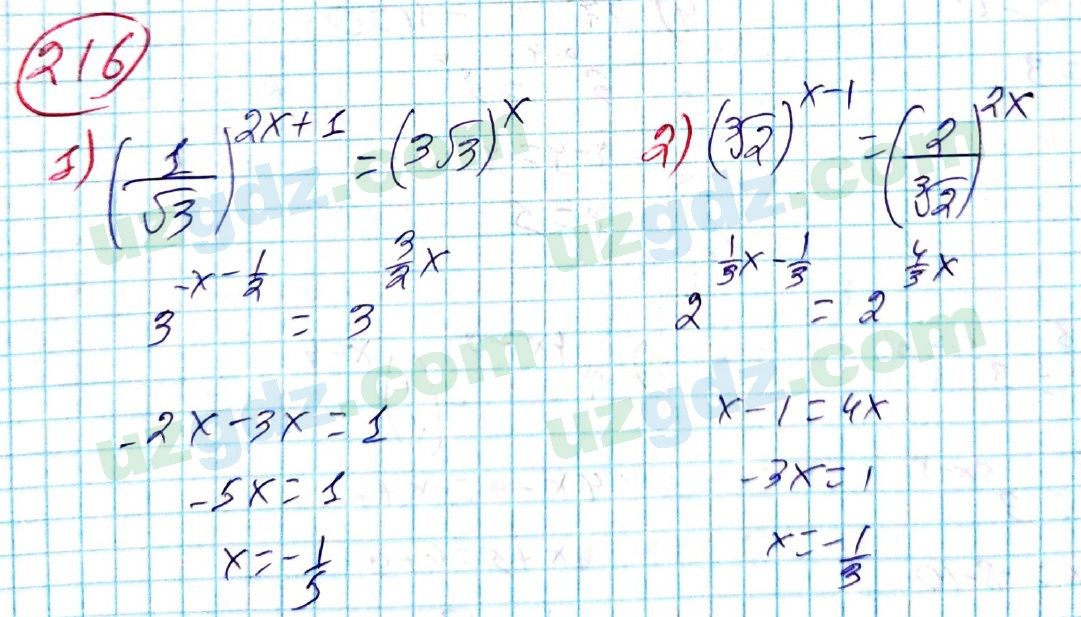 216
1) (1/√3)^(2x+1) = (3√3)^x
3^(-x-1/2) = 3^(3/2 x)
-2x-3x=1
-5x=1
x=-1/5
2) (∛2)^(x-1) = (2/∛2)^(2x)
2^(1/3 x - 1/3) = 2^(4/3 x)
x-1=4x
-3x=1
x=-1/3
uzgdz.com
uzgdz.com
uzgdz.com
uzgdz.com